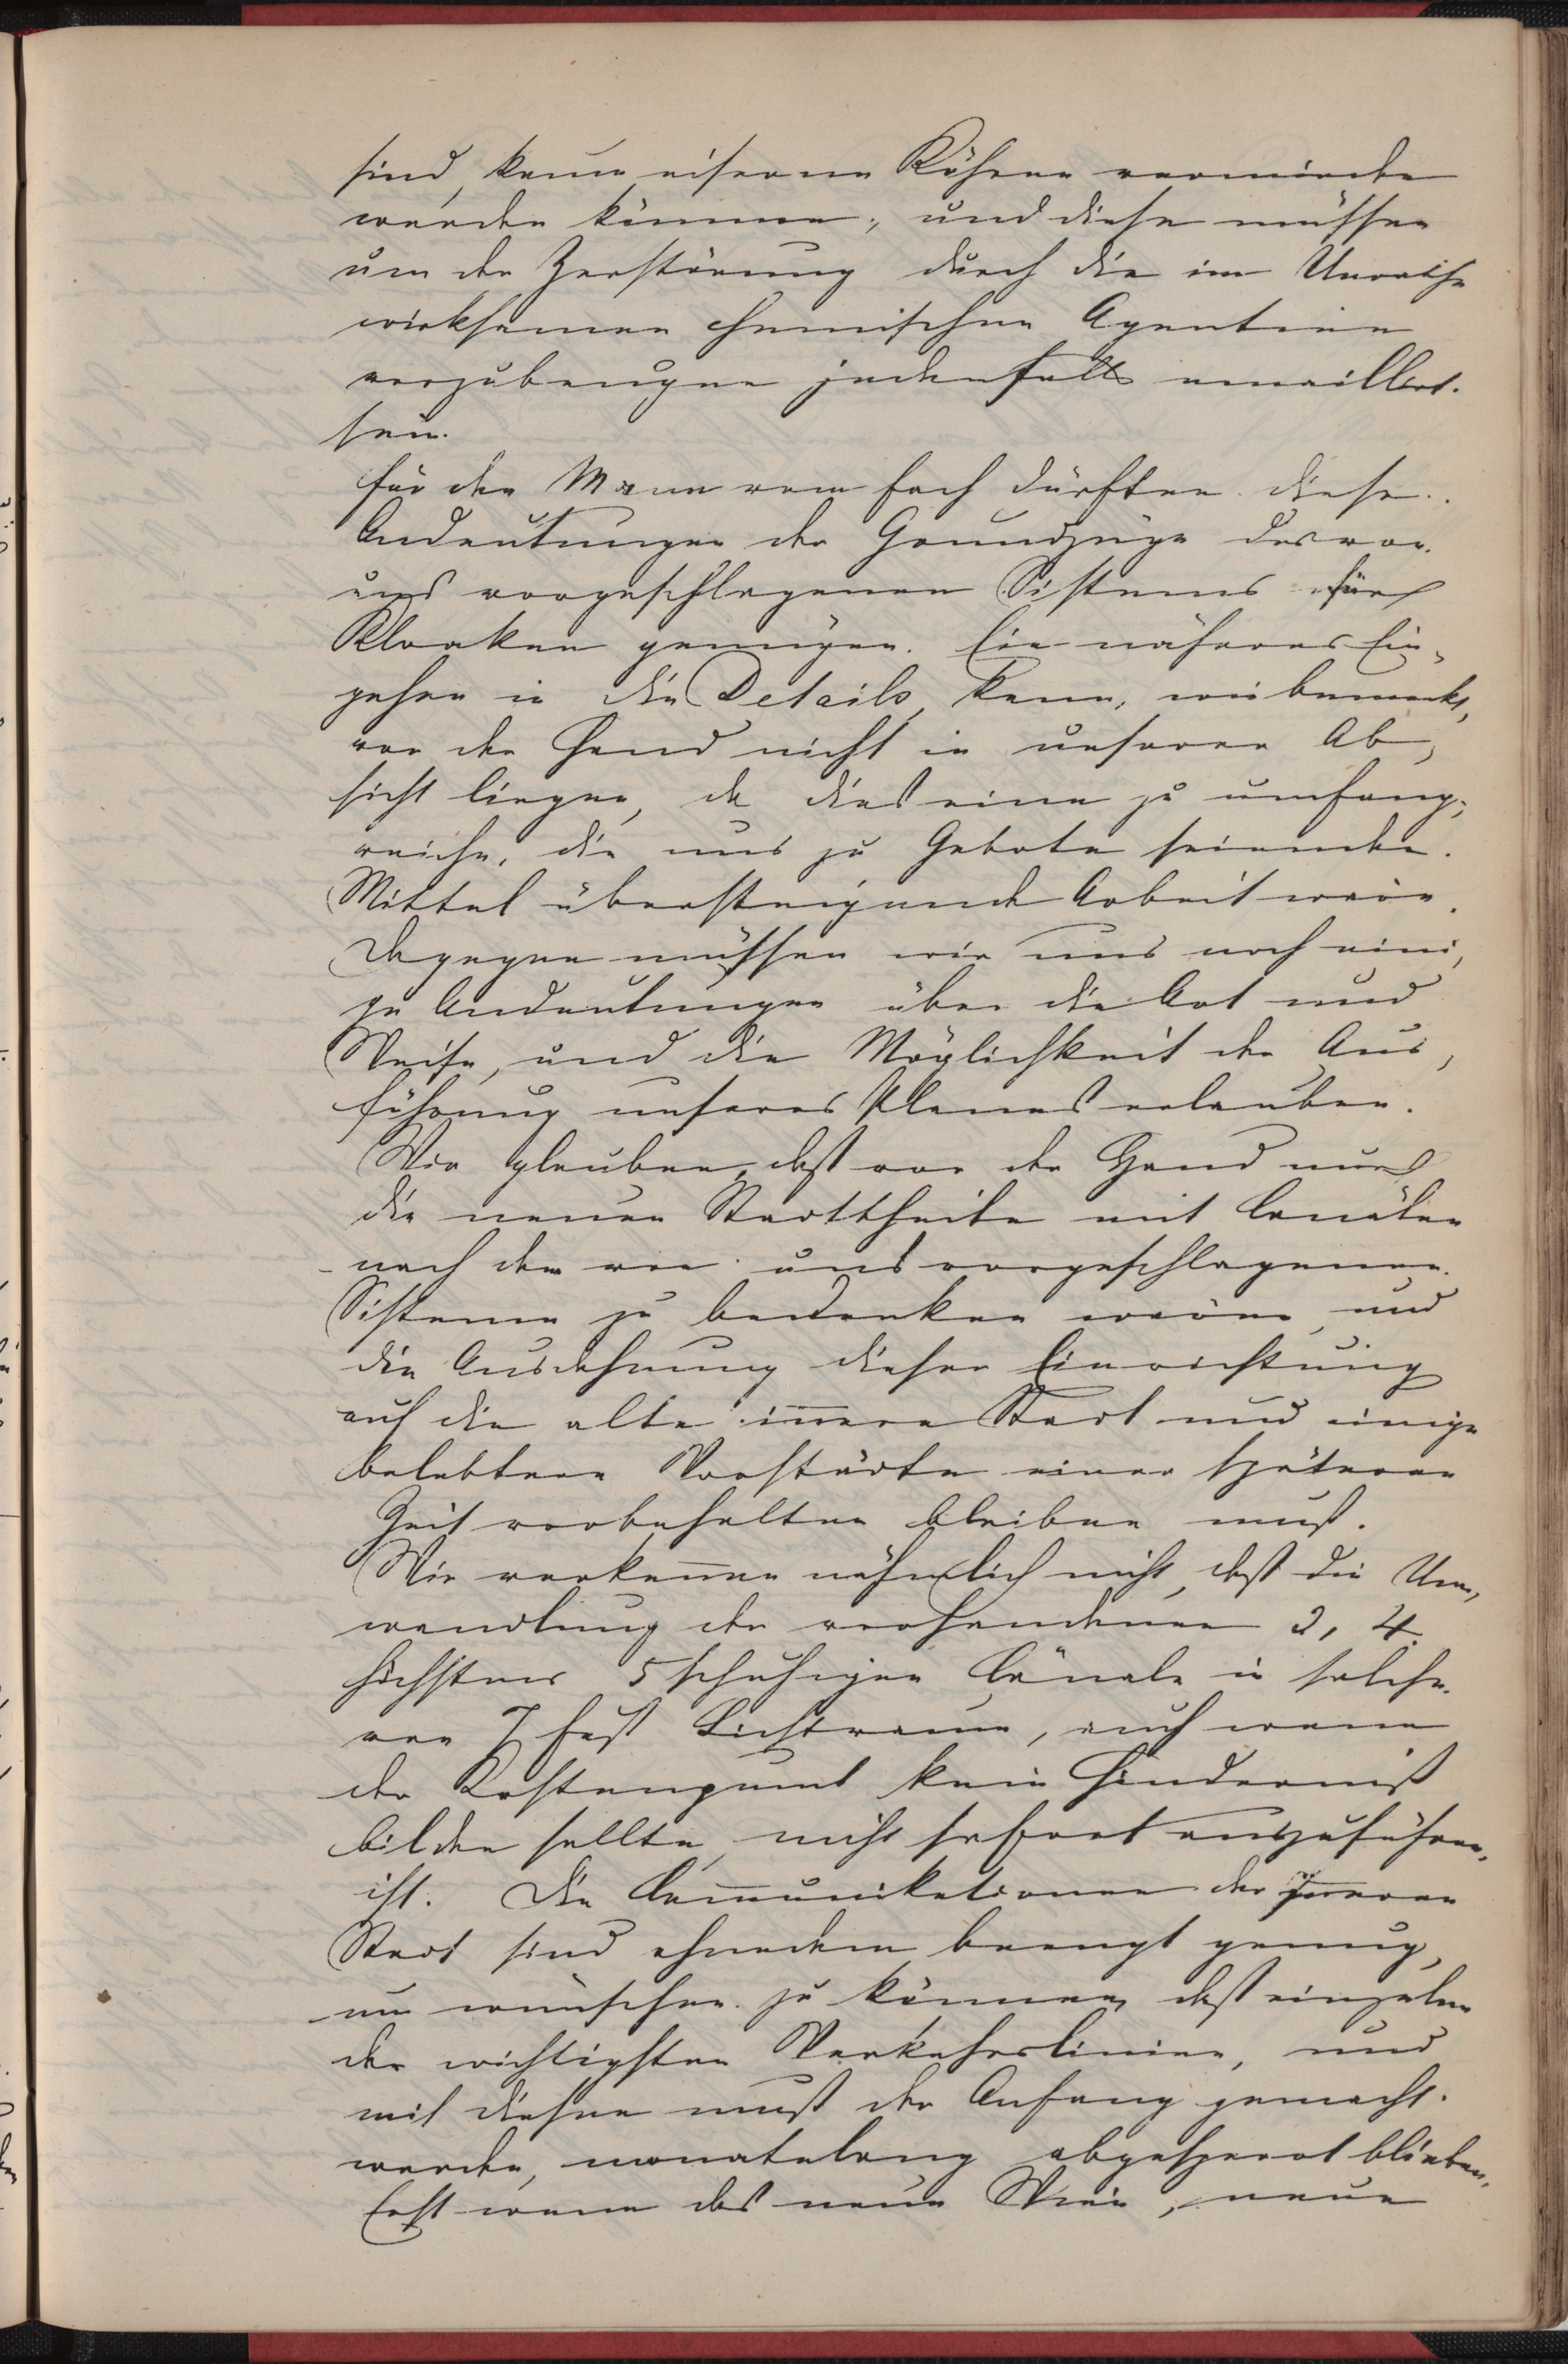 sind, kaum eiserne Röhren vermieden
werden können, und diese müssen
um der Zerstörung durch die im Unrathe
wirksamen chemischen Agentien
vorzubeugen jedenfalls emaillirt.
sein.
für den Mann vom Fach dürften diese
Andeutungen der Grundzüge des von
uns vorgeschlagenen Sistems für
Kloaken genügen. Ein näheres Ein-
gehen in die Details kann, wie bemerkt,
vor der Hand nicht in unserer Ab-
sicht liegen, da dies eine zu umfang-
reiche, die uns zu Gebote seienden
Mittel übersteigende Arbeit wäre.
Dagegen müssen wir uns noch eini-
ge Andeutungen über die Art und
Weise, und die Möglichkeit der Aus-
führung unseres Planes erlauben.
Wir glauben, daß vor der Hand nur
die neuen Stadttheile mit Canälen
nach dem von uns vorgeschlagenen
Sisteme zu bedenken wären, und
die Ausdehnung dieser Einrichtung
auf die alte iñere Stadt und einige
belebtere Vorstädte einer späteren
Zeit vorbehalten bleiben muß.
Wir verkeñen nähmlich nicht, daß die Um-
wandlung der vorhandenen 3, 4
höchstens 5 schuhigen Cänale in solche
von 7 Fuß Lichtraum, auch wenn
der Kostenpunct kein Hinderniß
bilden sollte, nicht sofort auszuführen
ist. Die Com̃unikationen der Jñeren
Stadt sind ohnedem beengt genug,
um wünschen zu können, daß einzelne
der wichtigsten Verkehrslinien, und
mit diesen muß der Anfang gemacht
werden, monatelang abgesperrt blieben.
Erst wenn das neue Wien, neue